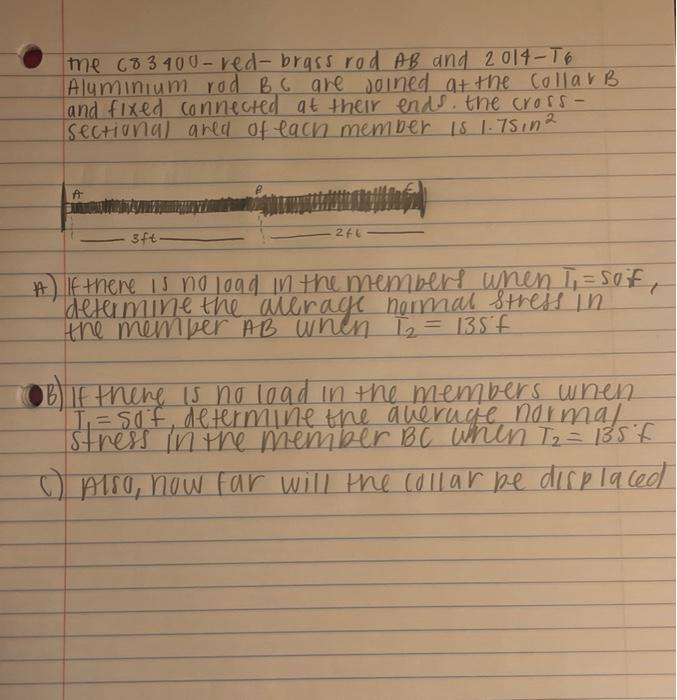 the C83400-red-brass rod AB and 2014-T6
Aluminium rod BC are joined at the collar B
and fixed connected at their ends. the cross-
sectional area of each member is 1.75in²
A B C
3ft 2ft
A) If there is no load in the members when T₁=50°f,
determine the average normal stress in
the member AB when T₂ = 135°f
B) If there is no load in the members when
T₁=50°f, determine the average normal
stress in the member BC when T₂= 135°f
C) Also, how far will the collar be displaced